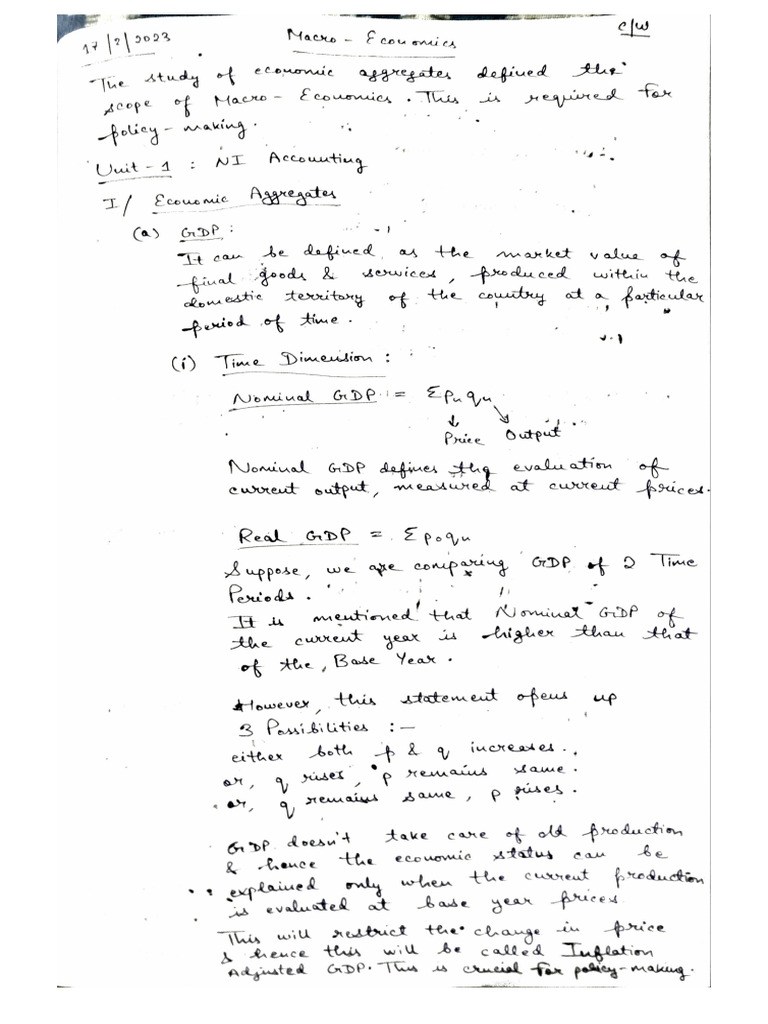 C/W
17/2/2023 Macro-Economics
The study of economic aggregates defined the
scope of Macro-Economics. This is required for
policy-making.
Unit-1 : NI Accounting
I/ Economic Aggregates
(a) GDP :
It can be defined as the market value of
final goods & services, produced within the
domestic territory of the country at a particular
period of time.
(i) Time Dimension :
Nominal GDP = Σpₙqₙ
Price Output
Nominal GDP defines the evaluation of
current output, measured at current prices.
Real GDP = Σp₀qₙ
Suppose, we are comparing GDP of 2 Time
Periods.
It is mentioned that Nominal GDP of
the current year is higher than that
of the, Base Year.
However, this statement opens up
3 Possibilities :-
either both p & q increases.
or, q rises, p remains same.
or, q remains same, p rises.
GDP doesn't take care of old production
& hence the economic status can be
explained only when the current production
is evaluated at base year prices.
This will restrict the change in price
& hence this will be called Inflation
Adjusted GDP. This is crucial for policy-making.